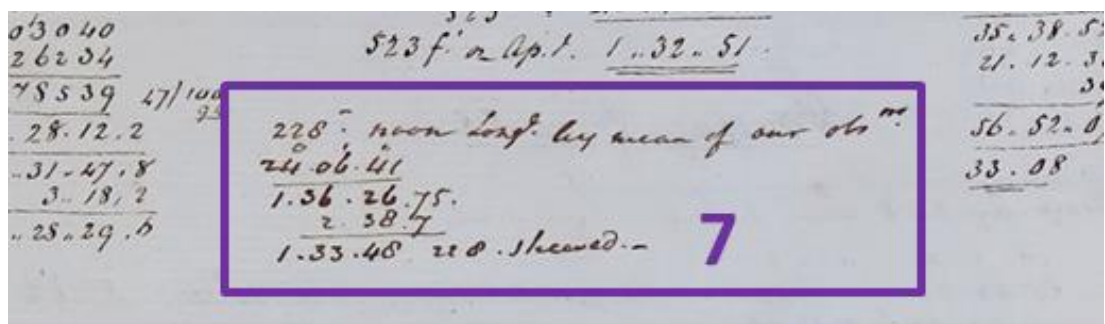 0 3 0 40
2 6 2 34
78539 47/100
. 28 . 12 . 2
.. 31 .. 47 . 8
3 .. 18 , 2
.. 28 .. 29 . 6
523 f. or Ap. t. 1 .. 32 .. 51 .
228 : noon Longd. by mean of our obs ns.
24 . 06 . 41
1 . 36 . 26 . 75 .
2 . 38 . 7
1 . 33 . 48 228 . shewed . –
7
35 . 38 . 52
21 . 12 . 3
56 . 52 . 0
33 . 08